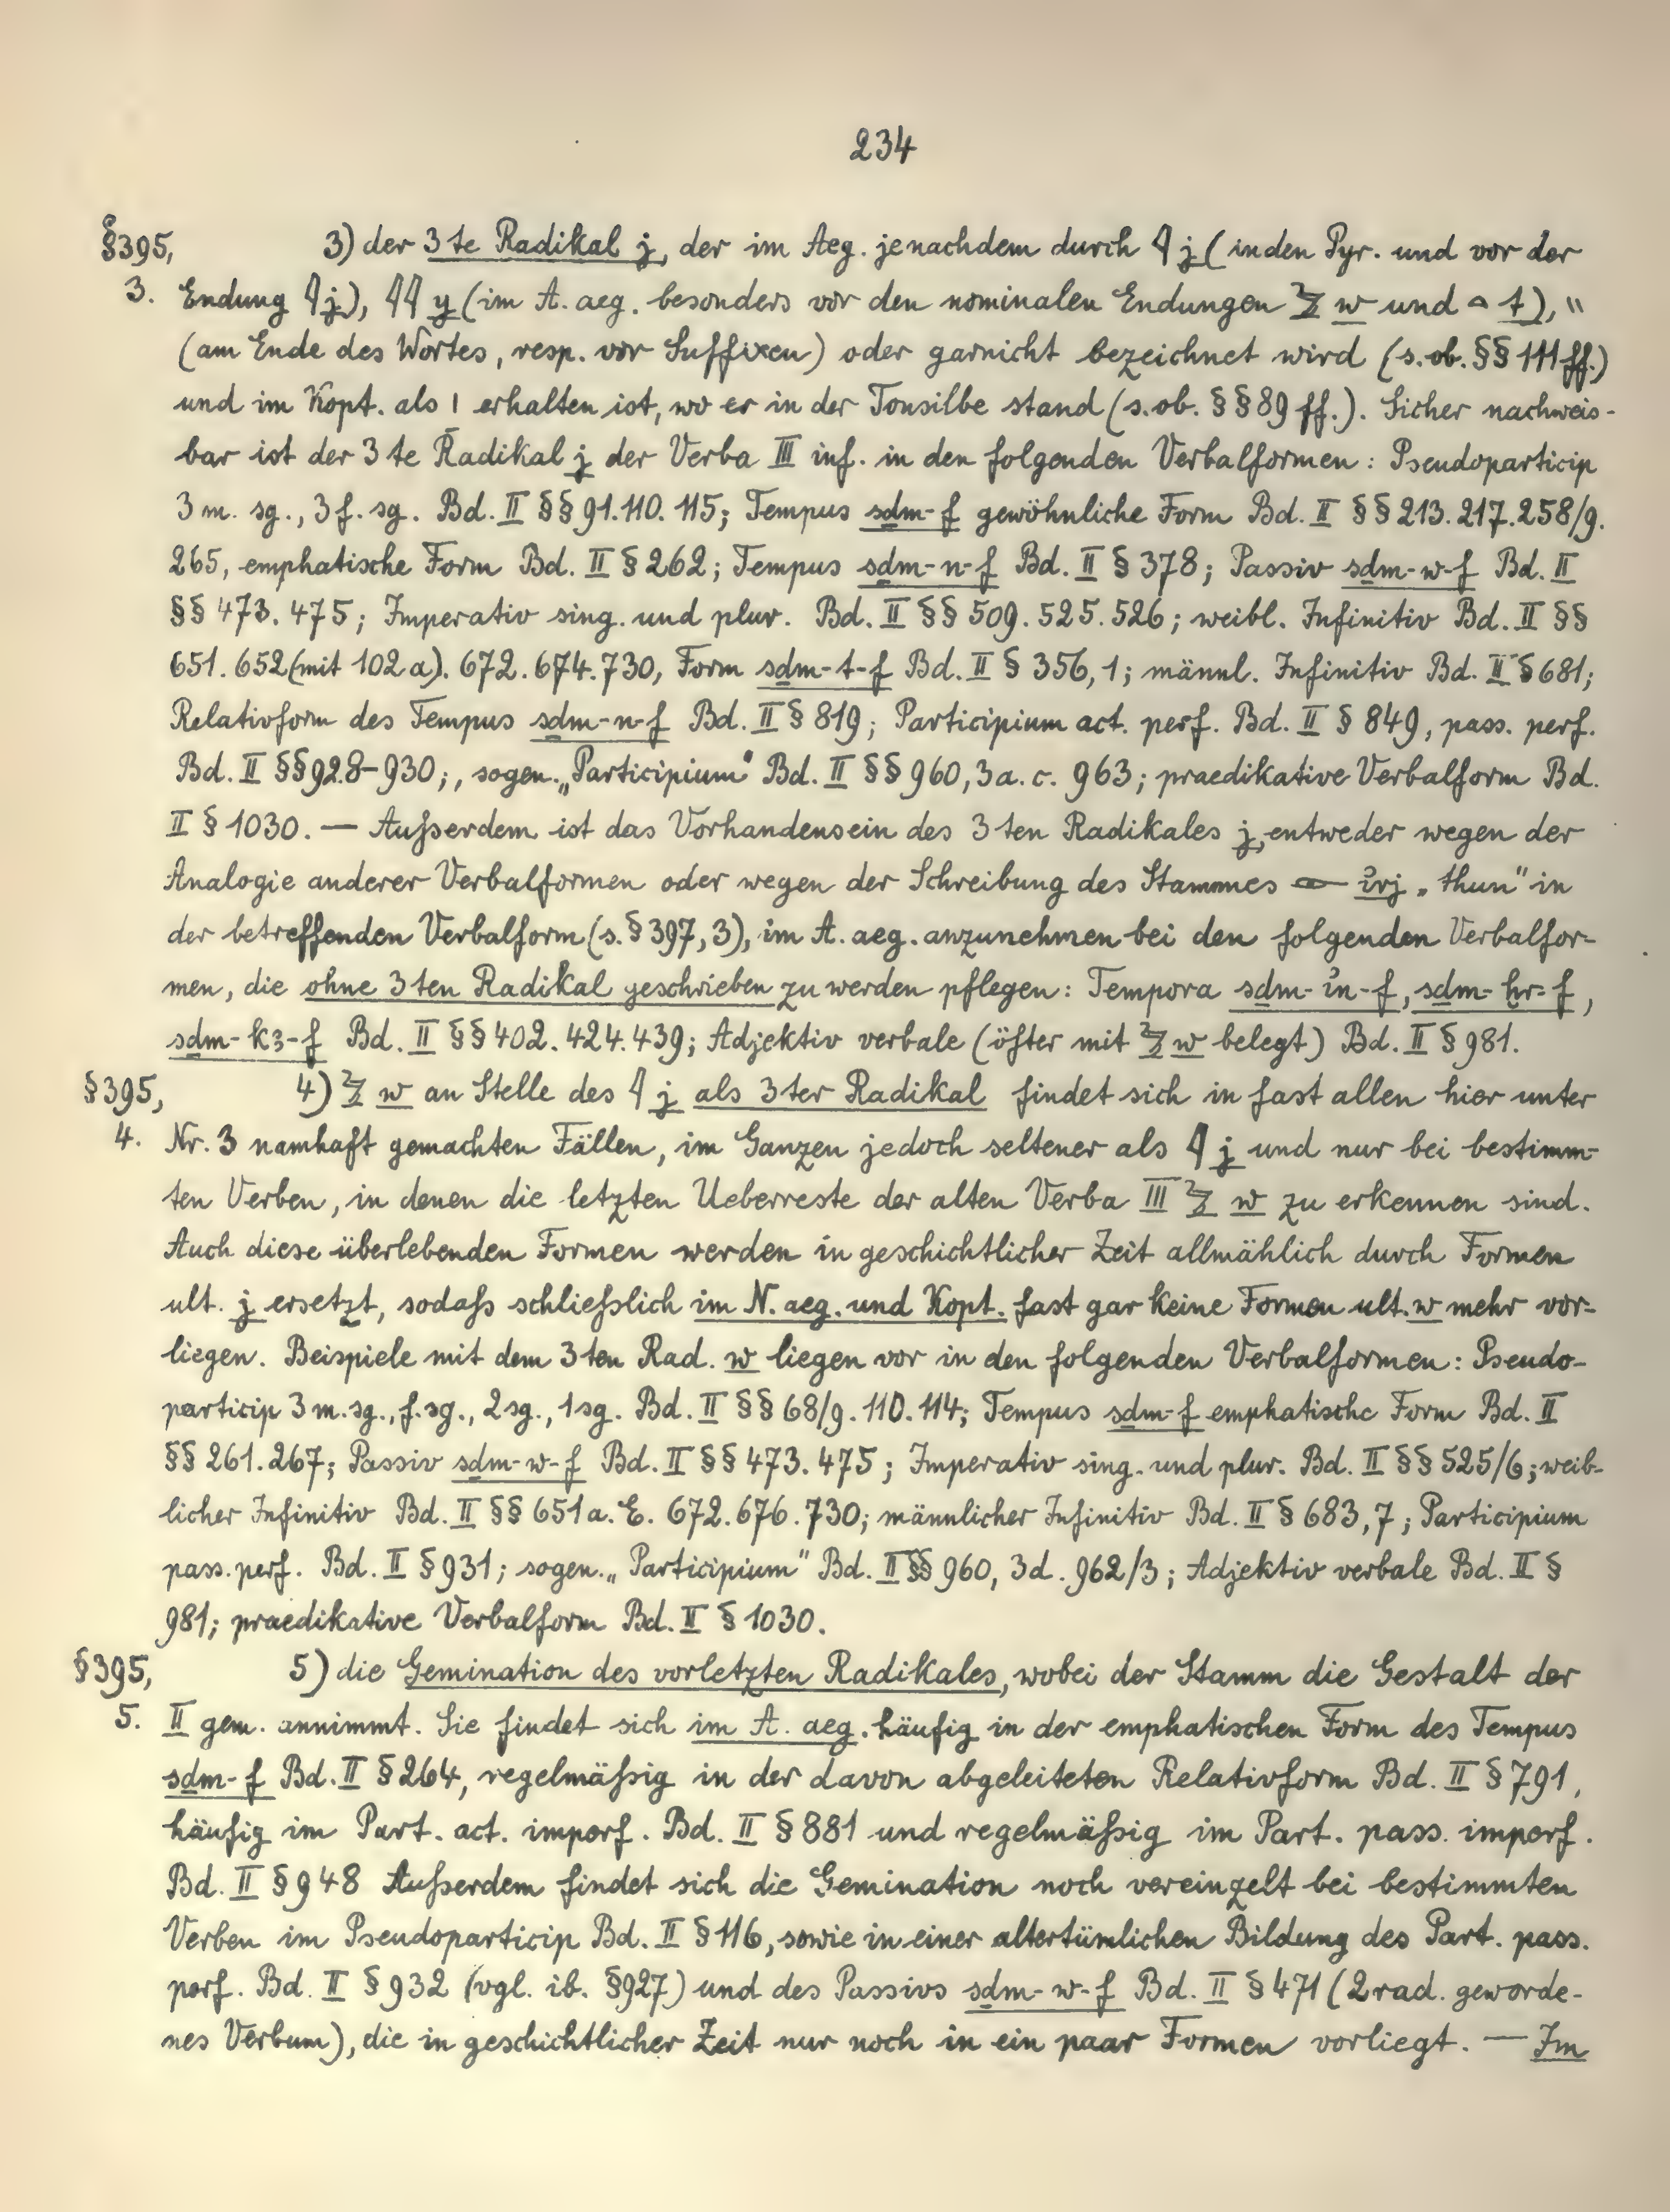 234
§395, 3) der 3te Radikal j, der im Aeg. jenachdem durch 𓇋 j (in den Pyr. und vor der
3. Endung 𓇋 j), 𓇋𓇋 y (im A. aeg. besonders vor den nominalen Endungen 𓅱 w und 𓏏 t), "
(am Ende des Wortes, resp. vor Suffixen) oder garnicht bezeichnet wird (s. ob. §§ 111 ff.)
und im Kopt. als ⲓ erhalten ist, wo er in der Tonsilbe stand (s. ob. §§ 89 ff.). Sicher nachweis-
bar ist der 3te Radikal j der Verba III inf. in den folgenden Verbalformen: Pseudoparticip
3 m. sg., 3 f. sg. Bd. II §§ 91. 110. 115; Tempus sḏm-f gewöhnliche Form Bd. II §§ 213. 217. 258/9.
265, emphatische Form Bd. II § 262; Tempus sḏm-n-f Bd. II § 378; Passiv sḏm-w-f Bd. II
§§ 473. 475; Imperativ sing. und plur. Bd. II §§ 509. 525. 526; weibl. Infinitiv Bd. II §§
651. 652 (mit 102 a). 672. 674. 730, Form sḏm-t-f Bd. II § 356, 1; männl. Infinitiv Bd. II § 681;
Relativform des Tempus sḏm-n-f Bd. II § 819; Participium act. perf. Bd. II § 849, pass. perf.
Bd. II §§ 928-930;, sogen. „Participium" Bd. II §§ 960, 3a. c. 963; praedikative Verbalform Bd.
II § 1030. — Außerdem ist das Vorhandensein des 3ten Radikales j, entweder wegen der
Analogie anderer Verbalformen oder wegen der Schreibung des Stammes 𓁹 ỉrj „thun" in
der betreffenden Verbalform (s. § 397, 3), im A. aeg. anzunehmen bei den folgenden Verbalfor-
men, die ohne 3ten Radikal geschrieben zu werden pflegen: Tempora sḏm-ỉn-f, sḏm-ḫr-f,
sḏm-kꜣ-f Bd. II §§ 402. 424. 439; Adjektiv verbale (öfter mit 𓅱 w belegt) Bd. II § 981.
§395, 4) 𓅱 w an Stelle des 𓇋 j als 3ter Radikal findet sich in fast allen hier unter
4. Nr. 3 namhaft gemachten Fällen, im Ganzen jedoch seltener als 𓇋 j und nur bei bestimm-
ten Verben, in denen die letzten Ueberreste der alten Verba III 𓅱 w zu erkennen sind.
Auch diese überlebenden Formen werden in geschichtlicher Zeit allmählich durch Formen
ult. j ersetzt, sodaß schließlich im N. aeg. und Kopt. fast gar keine Formen ult. w mehr vor-
liegen. Beispiele mit dem 3ten Rad. w liegen vor in den folgenden Verbalformen: Pseudo-
particip 3 m. sg., f. sg., 2 sg., 1 sg. Bd. II §§ 68/9. 110. 114; Tempus sḏm-f emphatische Form Bd. II
§§ 261. 267; Passiv sḏm-w-f Bd. II §§ 473. 475; Imperativ sing. und plur. Bd. II §§ 525/6; weib-
licher Infinitiv Bd. II §§ 651 a. E. 672. 676. 730; männlicher Infinitiv Bd. II § 683, 7; Participium
pass. perf. Bd. II § 931; sogen. „Participium" Bd. II §§ 960, 3d. 962/3; Adjektiv verbale Bd. II §
981; praedikative Verbalform Bd. II § 1030.
§395, 5) die Gemination des vorletzten Radikales, wobei der Stamm die Gestalt der
5. II gem. annimmt. Sie findet sich im A. aeg. häufig in der emphatischen Form des Tempus
sḏm-f Bd. II § 264, regelmäßig in der davon abgeleiteten Relativform Bd. II § 791,
häufig im Part. act. imperf. Bd. II § 881 und regelmäßig im Part. pass. imperf.
Bd. II § 948 Außerdem findet sich die Gemination noch vereinzelt bei bestimmten
Verben im Pseudoparticip Bd. II § 116, sowie in einer altertümlichen Bildung des Part. pass.
perf. Bd. II § 932 (vgl. ib. § 927) und des Passivs sḏm-w-f Bd. II § 471 (2rad. geworde-
nes Verbum), die in geschichtlicher Zeit nur noch in ein paar Formen vorliegt. — Im